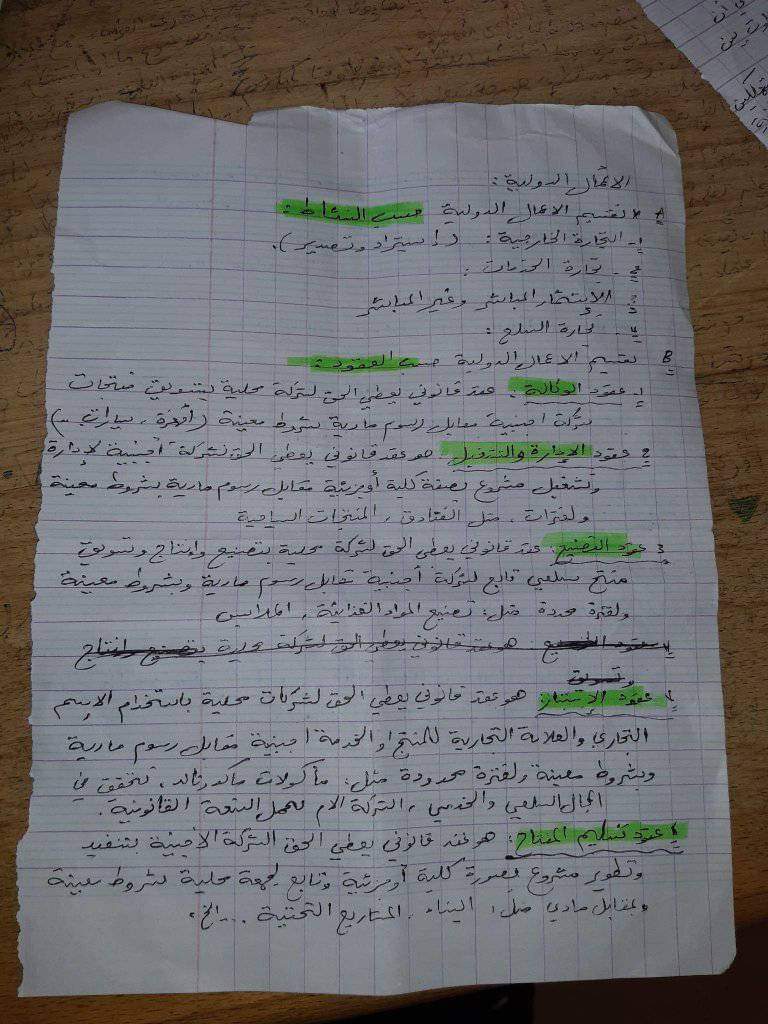 الاعمال الدولية :
A × تقسيم الاعمال الدولية حسب النشاط :
1- التجارة الخارجية : (استيراد وتصدير).
2- تجارة الخدمات :
3- الاستثمار المباشر وغير المباشر
4- تجارة السلع :
B تقسيم الاعمال الدولية حسب العقود :
1- عقود الوكالة : عقد قانوني يعطي الحق لشركة محلية بتسويق منتجات
شركة اجنبية مقابل رسوم مادية بشروط معينة (أجهزة ، سيارات ..)
2- عقود الإدارة والتشغيل : هو عقد قانوني يعطي الحق لشركة أجنبية لإدارة
وتشغيل مشروع بصفة كلية أو جزئية مقابل رسوم مادية بشروط معينة
ولفترات ، مثل الفنادق ، المنتجات السياحية
3- عقود التصنيع : عقد قانوني يعطي الحق لشركة محلية بتصنيع وإنتاج وتسويق
منتج سلعي تابع لشركة أجنبية مقابل رسوم مادية وبشروط معينة
ولفترة محددة مثل : تصنيع المواد الغذائية ، الملابس
4- عقود التصنيع هو عقد قانوني يعطي الحق لشركة محلية بتصنيع وإنتاج
وتسويق
4- عقود الإمتياز : هو عقد قانوني يعطي الحق لشركات محلية باستخدام الاسم
التجاري والعلامة التجارية للمنتج او الخدمة اجنبية مقابل رسوم مادية
وبشروط معينة ولفترة محدودة مثل : مأكولات ماكدونالد ، تتحقق في
المجال السلعي والخدمي ، الشركة الام تتحمل التبعة القانونية .
عقود تسليم المفتاح : هو عقد قانوني يعطي الحق الشركة الأجنبية بتنفيذ
وتطوير مشروع بصورة كلية أو جزئية وتابع لجهة محلية بشروط معينة
وبمقابل مادي مثل : البناء ، المشاريع التحتية ... الخ .